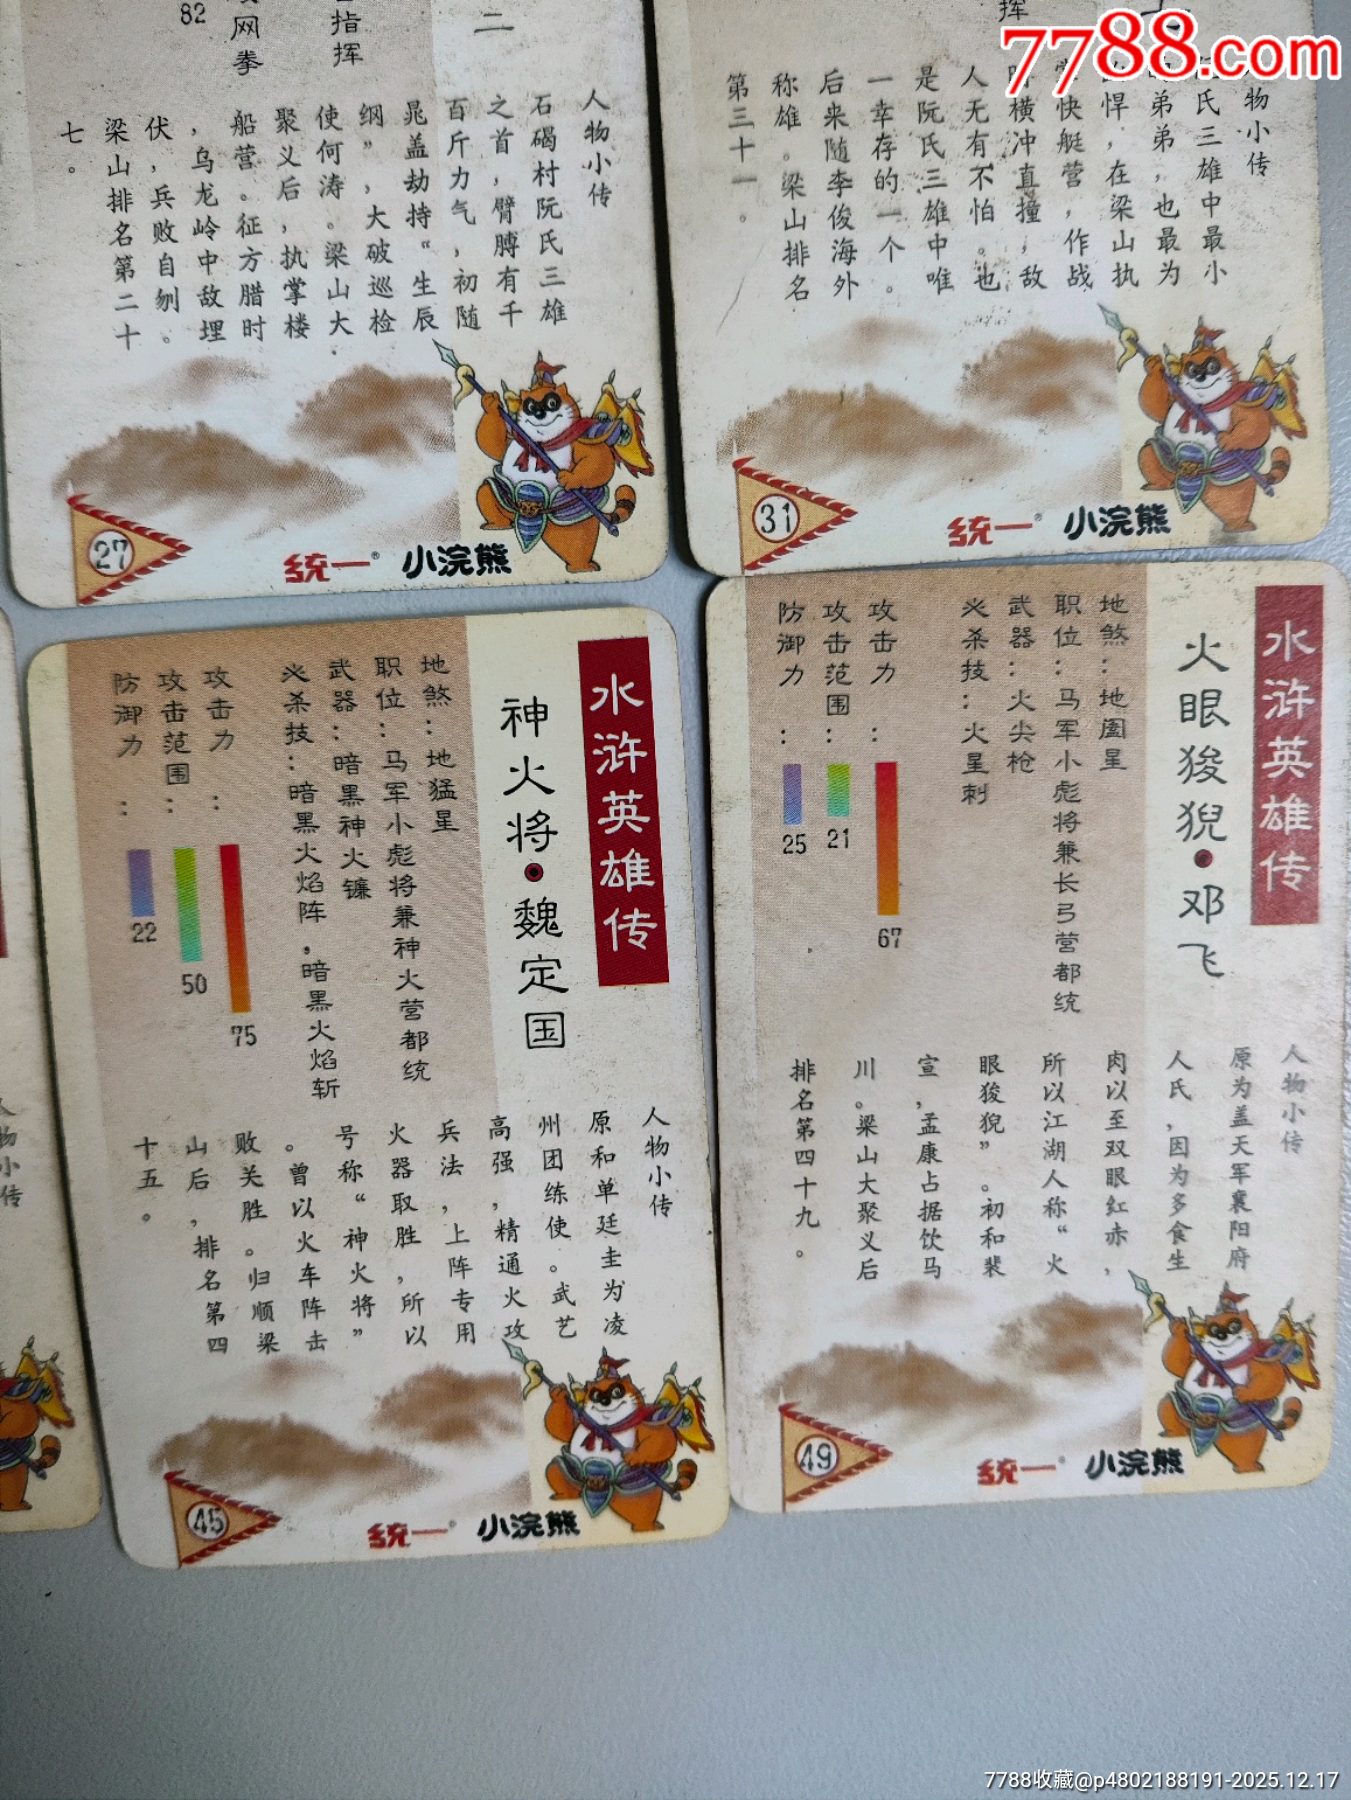 7788.com
82
网拳
指挥
二
人物小传
石碣村阮氏三雄
之首，臂膊有千
百斤力气，初随
晁盖劫持“生辰
纲”，大破巡检
使何涛。梁山大
聚义后，执掌楼
船营。征方腊时
，乌龙岭中敌埋
伏，兵败自刎。
梁山排名第二十
七。
27
统一® 小浣熊
挥
物小传
氏三雄中最小
弟弟，也最为
悍，在梁山执
快艇营，作战
横冲直撞，敌
人无有不怕。也
是阮氏三雄中唯
一幸存的一个。
后来随李俊海外
称雄。梁山排名
第三十一。
31
统一® 小浣熊
水浒英雄传
神火将·魏定国
地煞：地猛星
职位：马军小彪将兼神火营都统
武器：暗黑神火镰
必杀技：暗黑火焰阵，暗黑火焰斩
攻击力：
75
攻击范围：
50
防御力：
22
人物小传
原和单廷圭为凌
州团练使。武艺
高强，精通火攻
兵法，上阵专用
火器取胜，所以
号称“神火将”
。曾以火车阵击
败关胜。归顺梁
山后，排名第四
十五。
45
统一® 小浣熊
水浒英雄传
火眼狻猊·邓飞
地煞：地阖星
职位：马军小彪将兼长弓营都统
武器：火尖枪
必杀技：火星刺
攻击力：
67
攻击范围：
21
防御力：
25
人物小传
原为盖天军襄阳府
人氏，因为多食生
肉以至双眼红赤，
所以江湖人称“火
眼狻猊”。初和裴
宣，孟康占据饮马
川。梁山大聚义后
排名第四十九。
49
统一® 小浣熊
物小传
7788收藏@p4802188191-2025.12.17